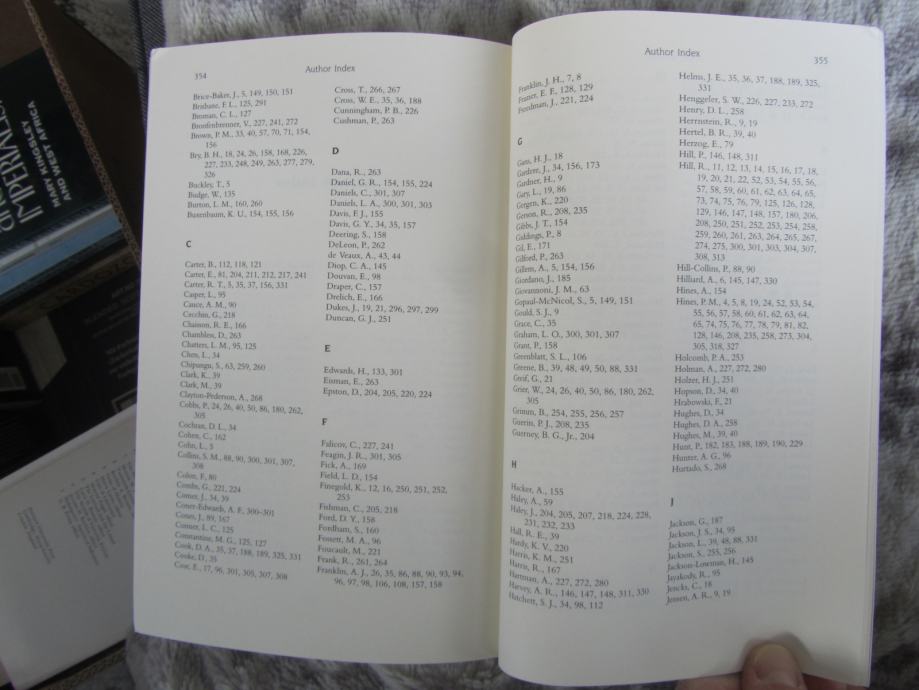 IMPERIAL
MARY KINGSLEY
AND WEST AFRICA
354
Author Index
Brice-Baker, J., 5, 149, 150, 151
Brisbane, F. L., 125, 291
Broman, C. L., 127
Bronfenbrenner, V., 227, 241, 272
Brown, P. M., 33, 40, 57, 70, 71, 154,
156
Bry, B. H., 18, 24, 26, 158, 168, 226,
227, 233, 248, 249, 263, 277, 279,
326
Buckley, T., 5
Budge, W., 135
Burton, L. M., 160, 260
Busenbaum, K. U., 154, 155, 156
C
Carter, B., 112, 118, 121
Carter, E., 81, 204, 211, 212, 217, 241
Carter, R. T., 5, 35, 37, 156, 331
Casper, L., 95
Cauce, A. M., 90
Cecchin, G., 218
Chaison, R. E., 166
Chambless, D., 263
Chatters, L. M., 95, 125
Chen, L., 34
Chipungu, S., 63, 259, 260
Clark, K., 39
Clark, M., 39
Clayton-Pederson, A., 268
Cobbs, P., 24, 26, 40, 50, 86, 180, 262,
305
Cochran, D. L., 34
Cohen, C., 162
Cohn, L., 5
Collins, S. M., 88, 90, 300, 301, 307,
308
Colon, F., 80
Combs, G., 221, 224
Comer, J., 34, 39
Coner-Edwards, A. F., 300–301
Cones, J., 89, 167
Conner, L. C., 125
Constantine, M. G., 125, 127
Cook, D. A., 35, 37, 188, 189, 325, 331
Cooke, D., 35
Cose, E., 17, 96, 301, 305, 307, 308
Cross, T., 266, 267
Cross, W. E., 35, 36, 188
Cunningham, P. B., 226
Cushman, P., 263
D
Dana, R., 263
Daniel, G. R., 154, 155, 224
Daniels, C., 301, 307
Daniels, L. A., 300, 301, 303
Davis, F. J., 155
Davis, G. Y., 34, 35, 157
Deering, S., 158
DeLeon, P., 262
de Veaux, A., 43, 44
Diop, C. A., 145
Douvan, E., 98
Draper, C., 157
Drelich, E., 166
Dukes, J., 19, 21, 296, 297, 299
Duncan, G. J., 251
E
Edwards, H., 133, 301
Eisman, E., 263
Epston, D., 204, 205, 220, 224
F
Falicov, C., 227, 241
Feagin, J. R., 301, 305
Fick, A., 169
Field, L. D., 154
Finegold, K., 12, 16, 250, 251, 252,
253
Fishman, C., 205, 218
Ford, D. Y., 158
Fordham, S., 160
Fossett, M. A., 96
Foucault, M., 221
Frank, R., 261, 264
Franklin, A. J., 26, 35, 86, 88, 90, 93, 94,
96, 97, 98, 106, 108, 157, 158
Author Index
355
Franklin, J. H., 7, 8
Frazier, E. F., 128, 129
Freedman, J., 221, 224
G
Gans, H. J., 18
Gardere, J., 34, 156, 173
Gardner, H., 9
Gary, L., 19, 86
Gergen, K., 220
Gerson, R., 208, 235
Gibbs, J. T., 154
Giddings, P., 8
Gil, E., 171
Gilford, P., 263
Gillem, A., 5, 154, 156
Giordano, J., 185
Giovannoni, J. M., 63
Gopaul-McNicol, S., 5, 149, 151
Gould, S. J., 9
Grace, C., 35
Graham, L. O., 300, 301, 307
Grant, P., 158
Greenblatt, S. L., 106
Greene, B., 39, 48, 49, 50, 88, 331
Greif, G., 21
Grier, W., 24, 26, 40, 50, 86, 180, 262,
305
Grimm, B., 254, 255, 256, 257
Guerin, P. J., 208, 235
Guerney, B. G., Jr., 204
H
Hacker, A., 155
Haley, A., 59
Haley, J., 204, 205, 207, 218, 224, 228,
231, 232, 233
Hall, R. E., 39
Hardy, K. V., 220
Harris, K. M., 251
Harris, R., 167
Hartman, A., 227, 272, 280
Harvey, A. R., 146, 147, 148, 311, 330
Hatchett, S. J., 34, 98, 112
Helms, J. E., 35, 36, 37, 188, 189, 325,
331
Henggeler, S. W., 226, 227, 233, 272
Henry, D. L., 258
Herrnstein, R., 9, 19
Hertel, B. R., 39, 40
Herzog, E., 79
Hill, P., 146, 148, 311
Hill, R., 11, 12, 13, 14, 15, 16, 17, 18,
19, 20, 21, 22, 52, 53, 54, 55, 56,
57, 58, 59, 60, 61, 62, 63, 64, 65,
73, 74, 75, 76, 79, 125, 126, 128,
129, 146, 147, 148, 157, 180, 206,
208, 250, 251, 252, 253, 254, 258,
259, 260, 261, 263, 264, 265, 267,
274, 275, 300, 301, 303, 304, 307,
308, 313
Hill-Collins, P., 88, 90
Hilliard, A., 6, 145, 147, 330
Hines, A., 154
Hines, P. M., 4, 5, 8, 19, 24, 52, 53, 54,
55, 56, 57, 58, 60, 61, 62, 63, 64,
65, 74, 75, 76, 77, 78, 79, 81, 82,
128, 146, 208, 235, 258, 273, 304,
305, 318, 327
Holcomb, P. A., 253
Holman, A., 227, 272, 280
Holzer, H. J., 251
Hopson, D., 34, 40
Hrabowski, F., 21
Hughes, D., 34
Hughes, D. A., 258
Hughes, M., 39, 40
Hunt, P., 182, 183, 188, 189, 190, 229
Hunter, A. G., 96
Hurtado, S., 268
J
Jackson, G., 187
Jackson, J. S., 34, 95
Jackson, L., 39, 48, 88, 331
Jackson, S., 255, 256
Jackson-Lowman, H., 145
Jayakody, R., 95
Jencks, C., 18
Jensen, A. R., 9, 19